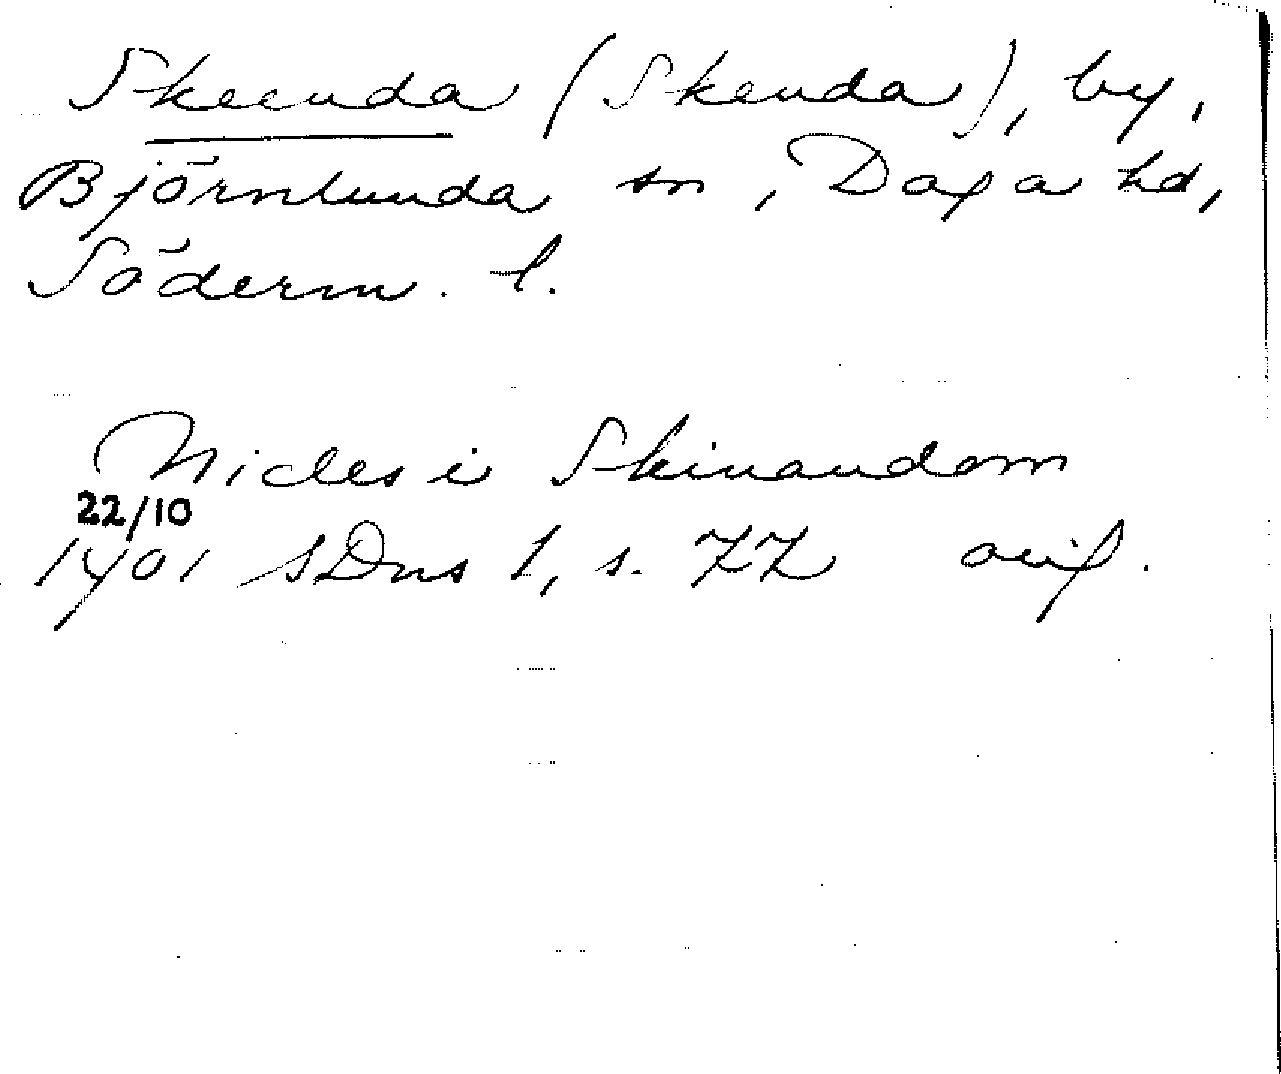 Skeenda (Skenda), by,
Björnlunda sn, Daga hd,
Söderm. l.
Nicles i Skinandom
22/10
1401 SDns 1, s. 77 avs.